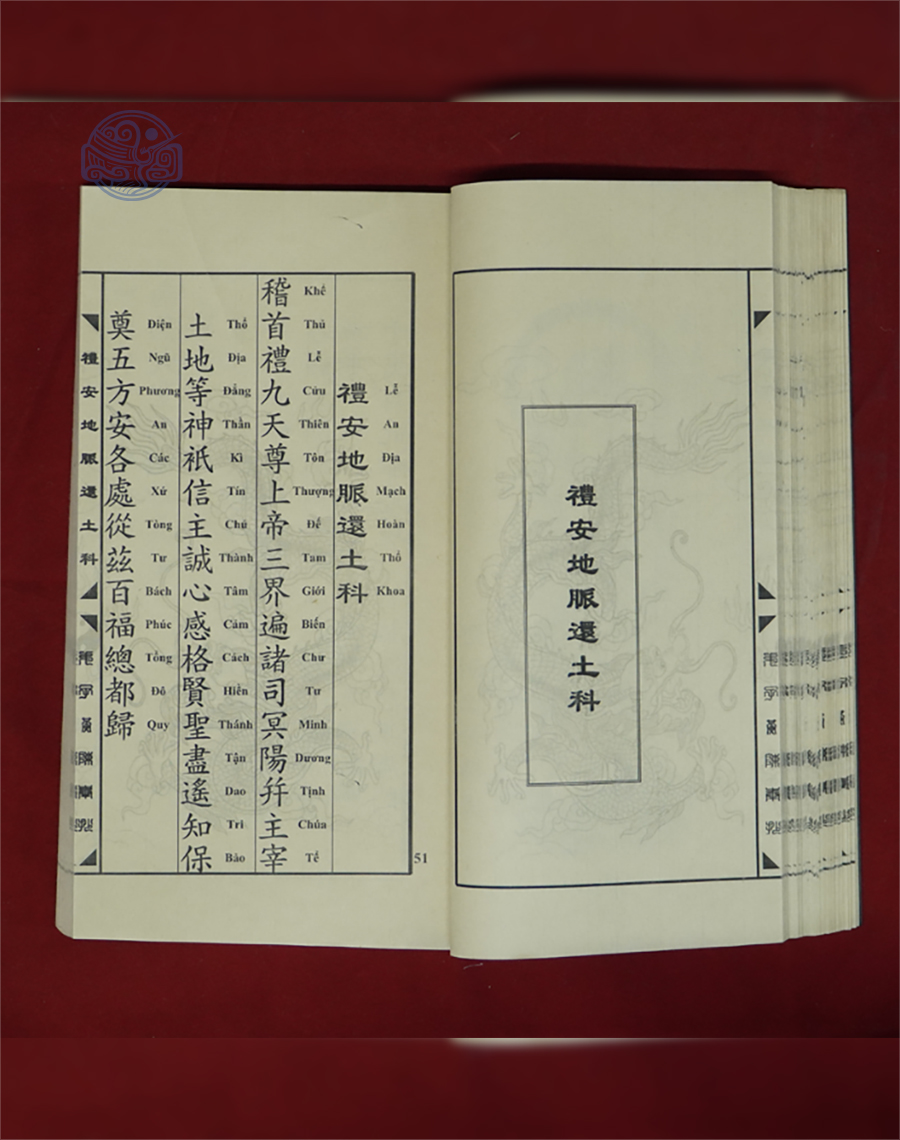 禮安地脈還土科
禮安地脈還土科
Lễ An Địa Mạch Hoàn Thổ Khoa
稽首禮九天尊上帝三界遍諸司冥陽并主宰
Khể Thủ Lễ Cửu Thiên Tôn Thượng Đế Tam Giới Biến Chư Tư Minh Dương Tịnh Chúa Tể
土地等神祇信主誠心感格賢聖盡遙知保
Thổ Địa Đẳng Thần Kì Tín Chủ Thành Tâm Cảm Cách Hiền Thánh Tận Dao Tri Bảo
奠五方安各處從茲百福總都歸
Diện Ngũ Phương An Các Xứ Tòng Tư Bách Phúc Tổng Đô Quy
禮安地脈還土科
51